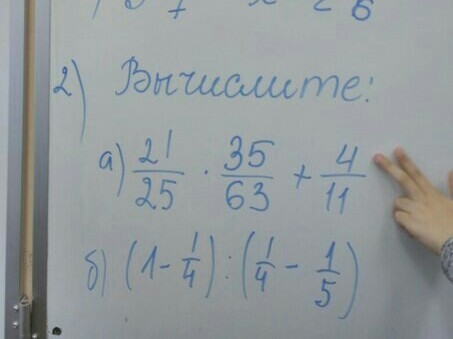 2) Вычислите:
а) 21/25 · 35/63 + 4/11
б) (1 - 1/4) : (1/4 - 1/5)